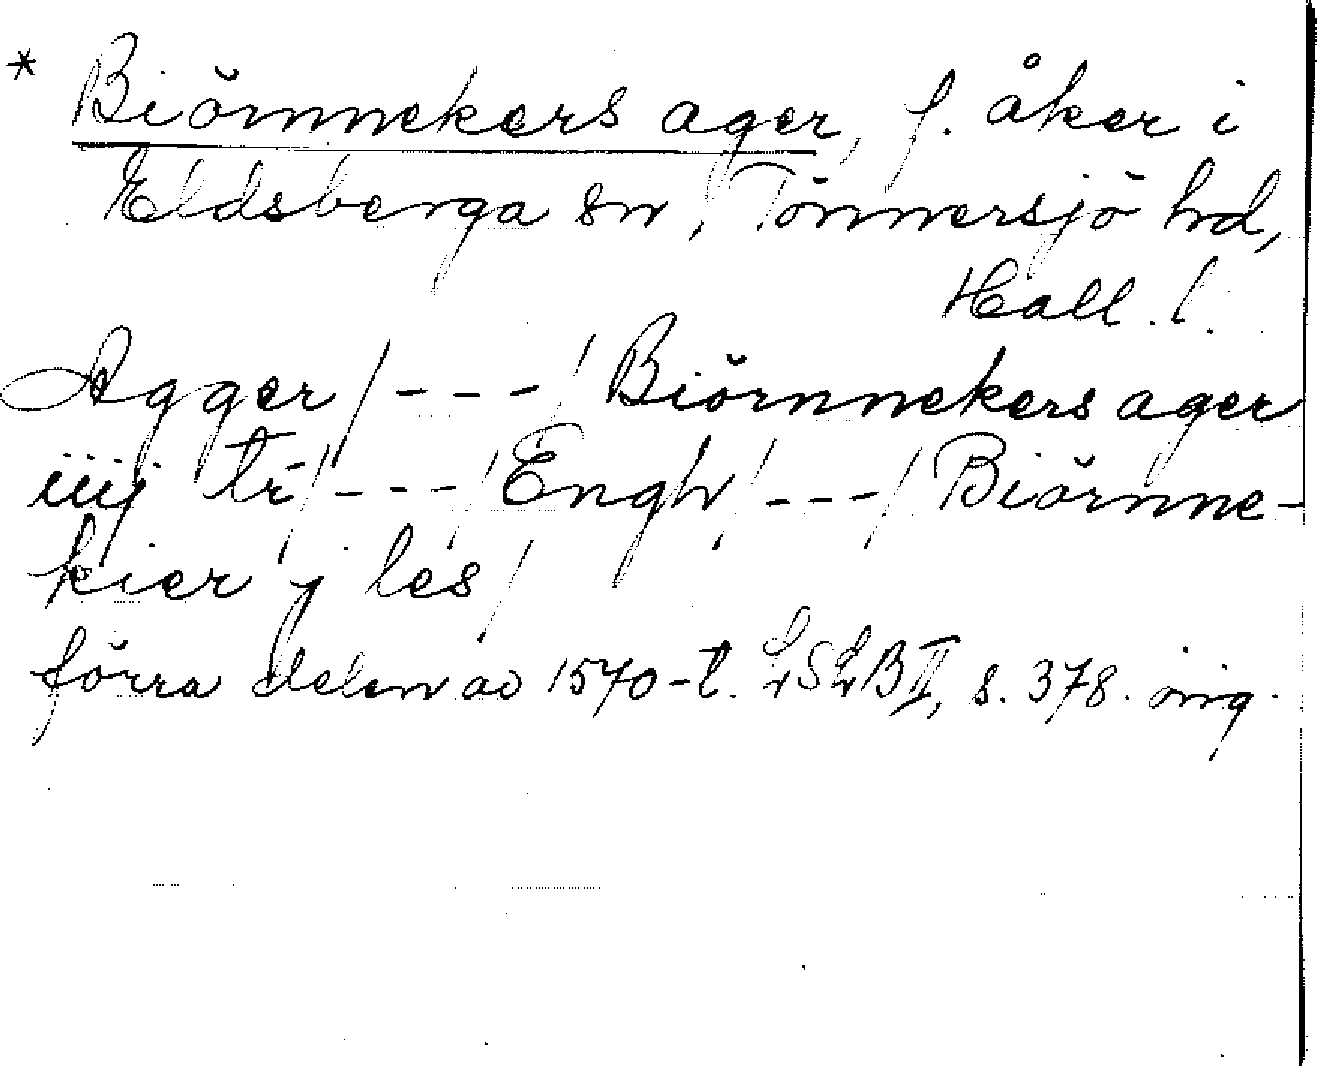 * Biörnnekers ager, f. åker i
Eldsberga sn, Tönnersjö hd,
Hall. l.
Agger / - - - / Biörnnekers ager
iiij tr / - - - / Engh / - - - / Biörnne-
kier j les /
förra delen av 1570-t. LSLB II, s. 378. orig.